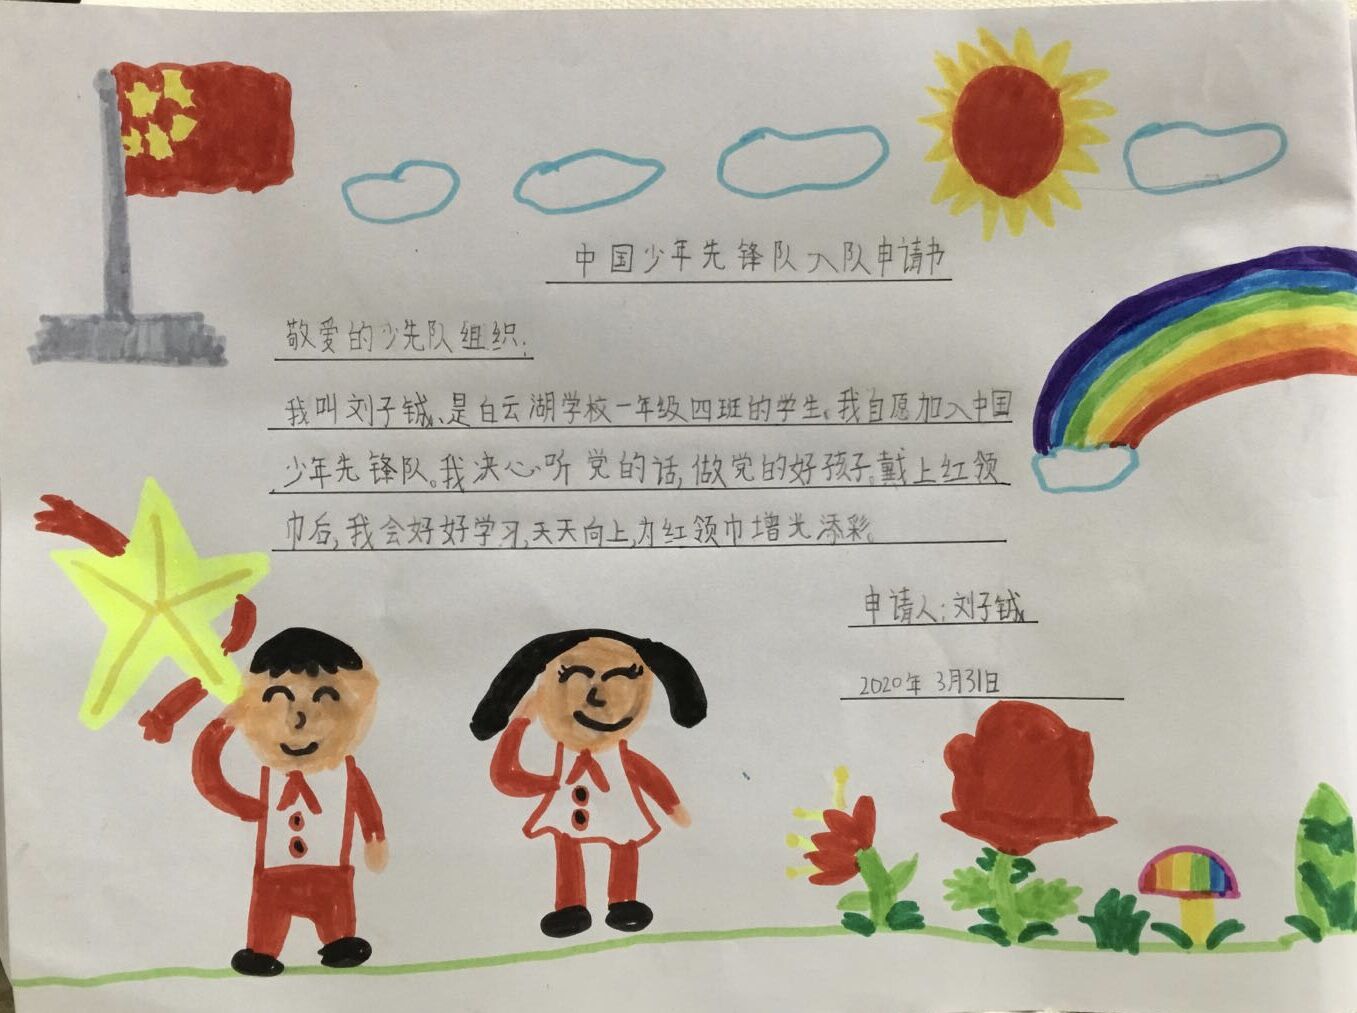 中国少年先锋队入队申请书
敬爱的少先队组织:
我叫刘子铖、是白云湖学校一年级四班的学生。我自愿加入中国
少年先锋队。我决心听党的话,做党的好孩子。戴上红领
巾后,我会好好学习,天天向上,为红领巾增光添彩。
申请人:刘子铖
2020年3月31日